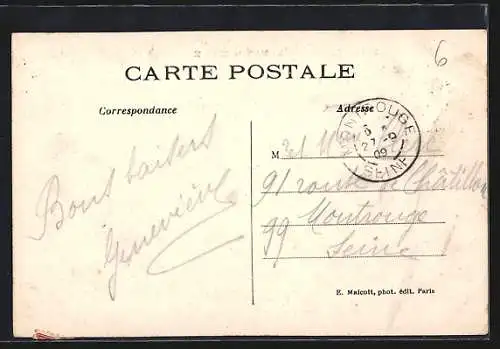 6
CARTE POSTALE
Correspondance
Adresse
MONTROUGE
27 -9
09
SEINE
M
Bons baisers
Geneviève
91 route de Châtillon
99 Montrouge
Seine
E. Malcott, phot. édit. Paris